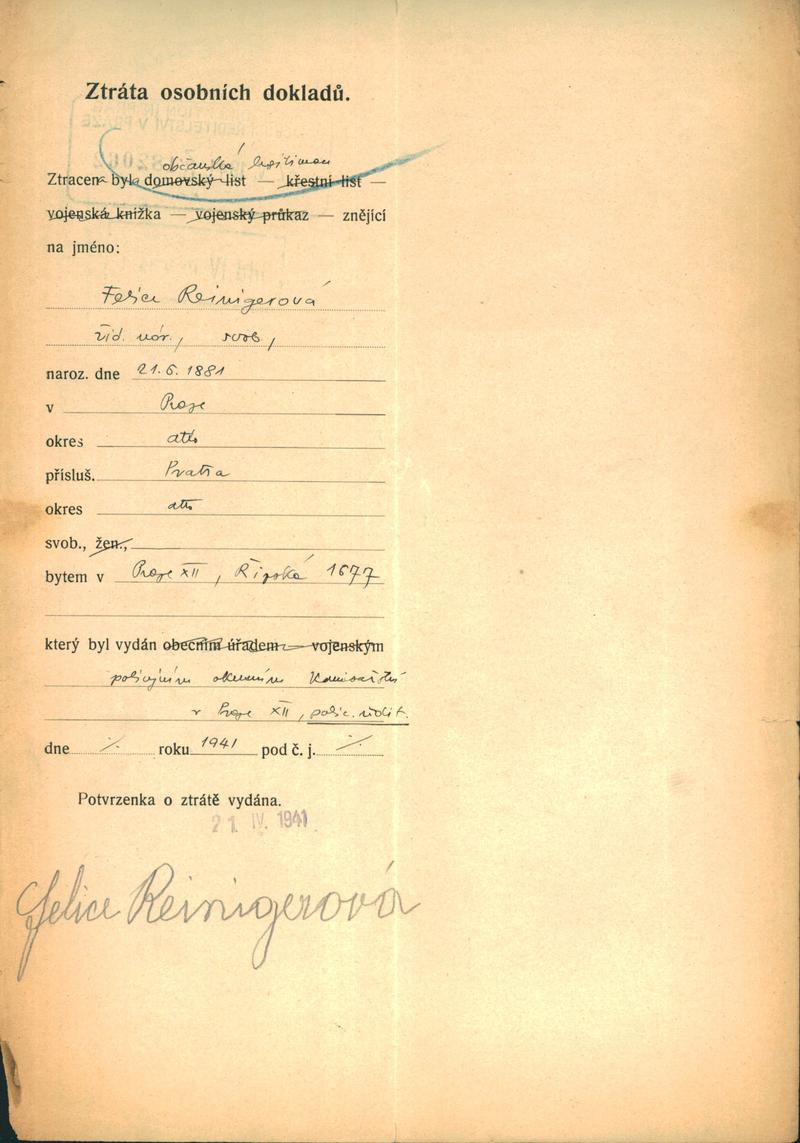 Ztráta osobních dokladů.
občanská legitimace
Ztracen byl domovský list — křestní list —
vojenská knížka — vojenský průkaz — znějící
na jméno:
Felice Reinigerová
žid. nár., svob.,
naroz. dne 21.6.1881
v Praze
okres dtto
přísluš. Praha
okres dtto
svob., žen.,
bytem v Praze XII, Římská 1677
který byl vydán obecním úřadem — vojenským
policejním okresním
v Praze XII, polic. ředit.
dne ./. roku 1941 pod č. j. ./.
Potvrzenka o ztrátě vydána.
21. IV. 1941
Felice Reinigerová